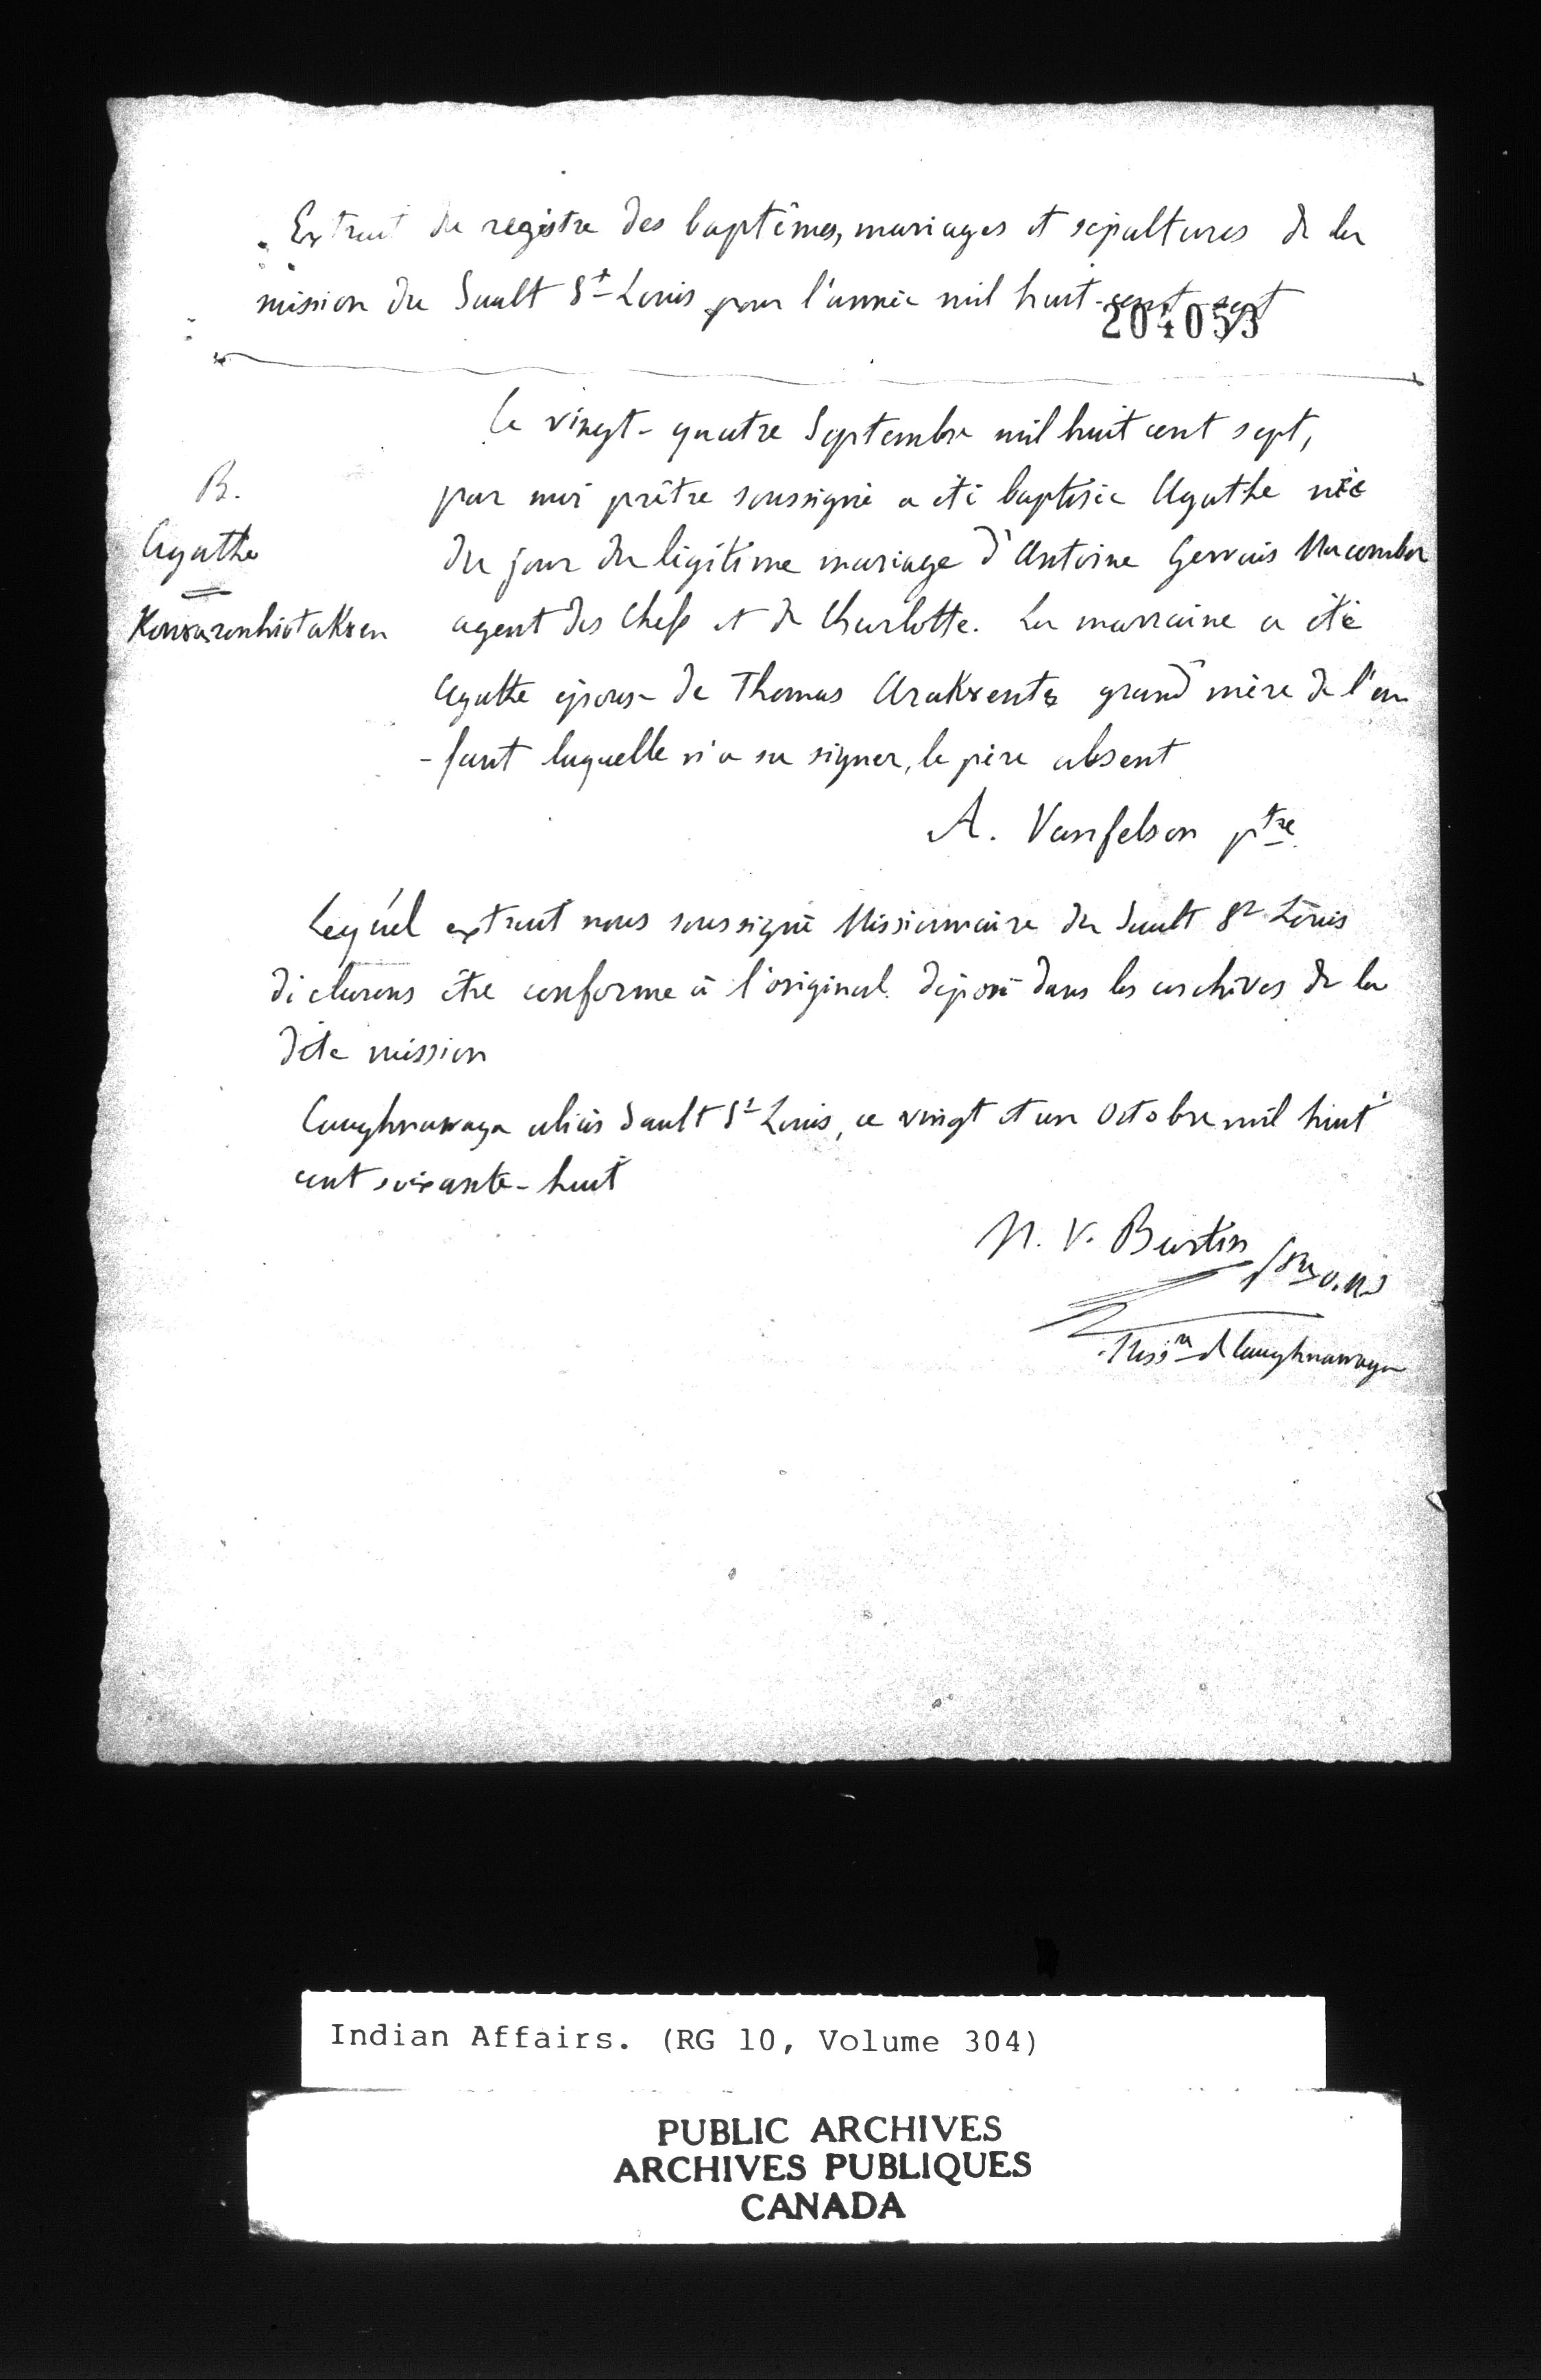 Extrait du registre des baptêmes, mariages et sépultures de la
mission du Sault St Louis pour l'année mil huit-cent sept
204053
Le vingt-quatre Septembre mil huit cent sept,
B.
par moi prêtre soussigné a été baptisée Agathe née
Agathe
du jour du légitime mariage d'Antoine Gervais Macomber
agent des Chefs et de Charlotte. La marraine a été
Agathe épouse de Thomas grand'mère de l'en
-fant laquelle n'a su signer, le père absent
A. Vanfelson ptre
Lequel extrait nous soussigné Missionnaire du Sault St Louis
déclarons être conforme à l'original déposé dans les archives de la
dite mission
Caughnawaga alias Sault St Louis, ce vingt et un Octobre mil huit
cent soixante-huit
N. V. Burtin ptre O.M.I
Missre de Caughnawaga
Indian Affairs. (RG 10, Volume 304)
PUBLIC ARCHIVES
ARCHIVES PUBLIQUES
CANADA